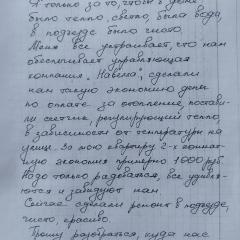 Я только за то, чтобы в доме
было тепло, светло, была вода,
в подъезде было чисто.
Меня все устраивает, что нам
обеспечивает управляющая
компания "Навела", сделали
нам такую экономию денег
по оплате за отопление, постави-
ли счетчик, регулирующий тепло,
в зависимости от температуры на
улице. За мою квартиру 2-х комнат-
ную экономия примерно 1000 руб.
Надо только радоваться, все удивля-
ются и завидуют нам.
Сейчас сделали ремонт в подъезде,
чисто, красиво.
Прошу разобраться, куда нас